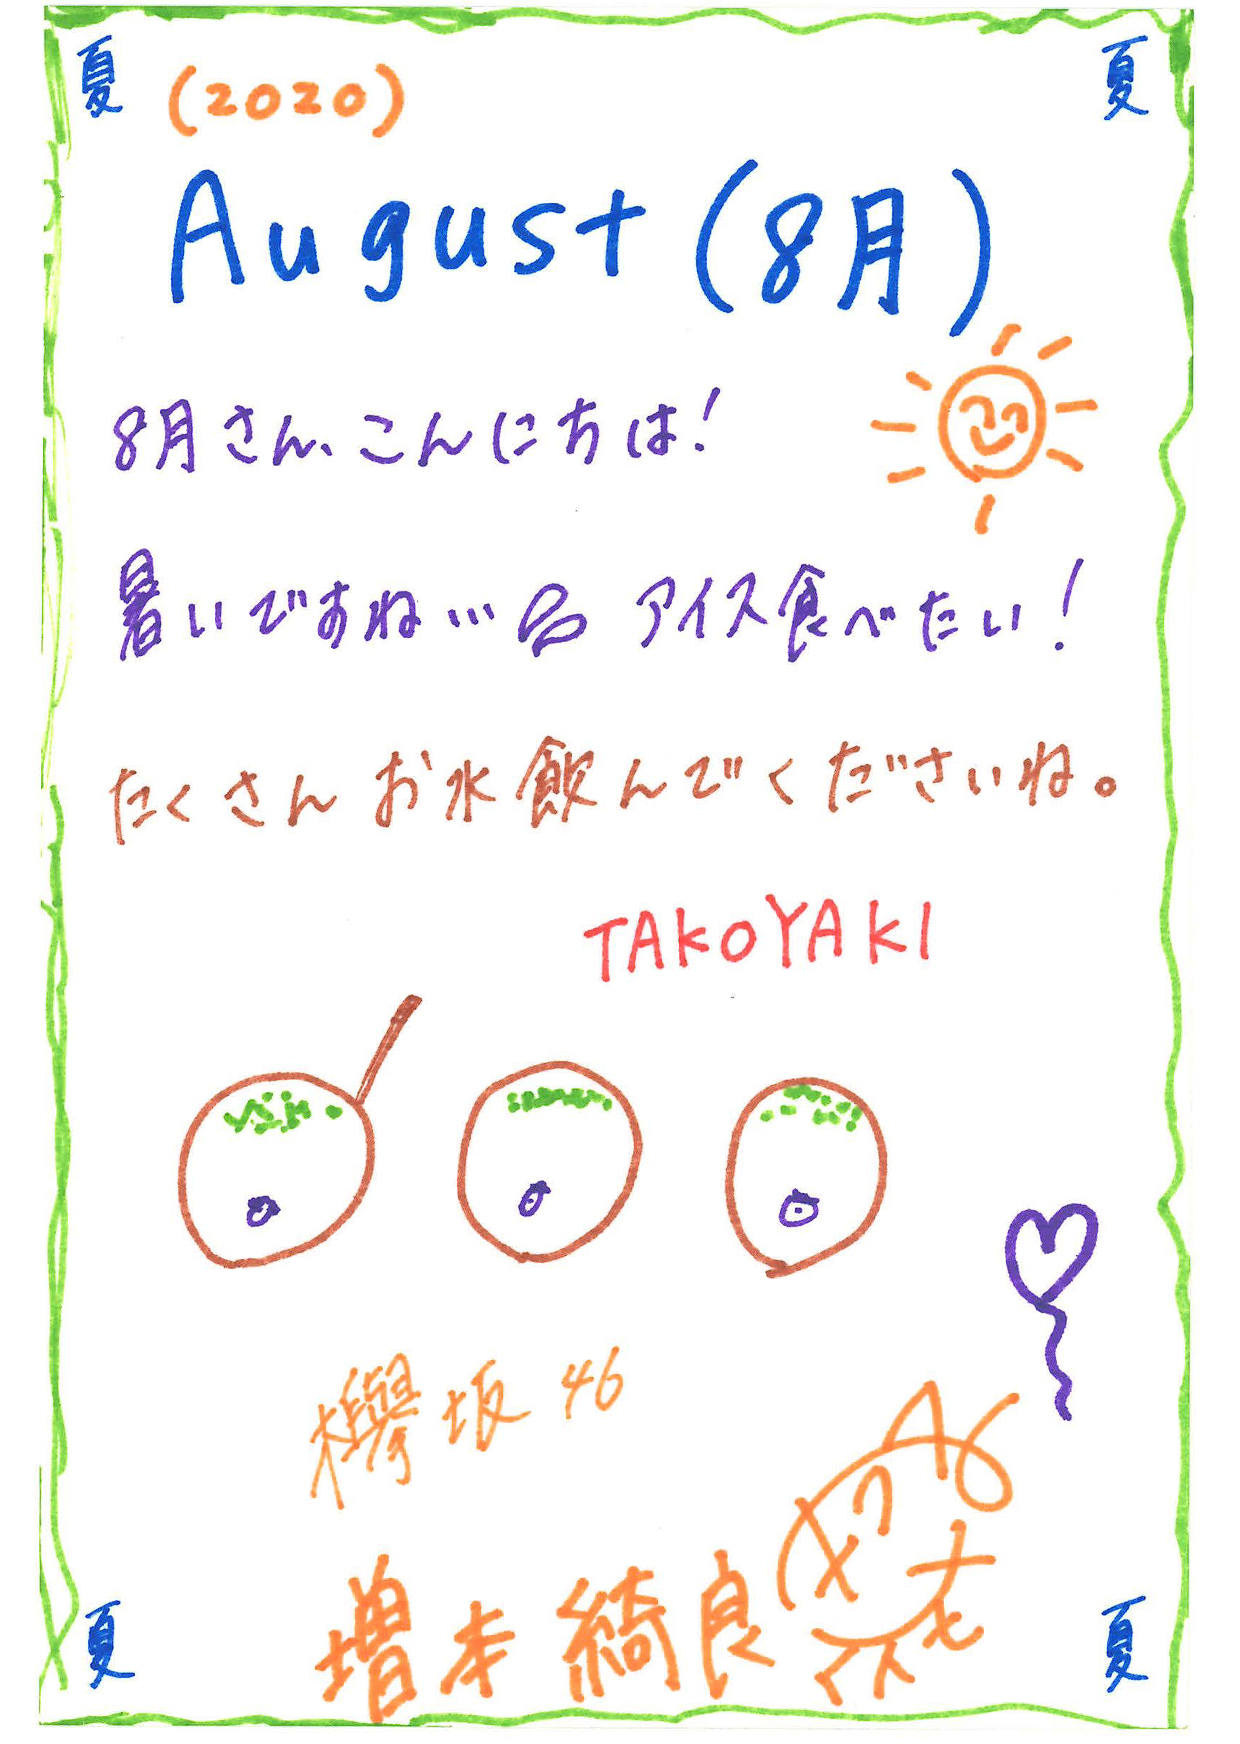 夏 夏
(2020)
August (8月)
8月さん、こんにちは!
暑いですね… アイス食べたい!
たくさんお水飲んでくださいね。
TAKOYAKI
欅坂46
増本綺良
夏 夏